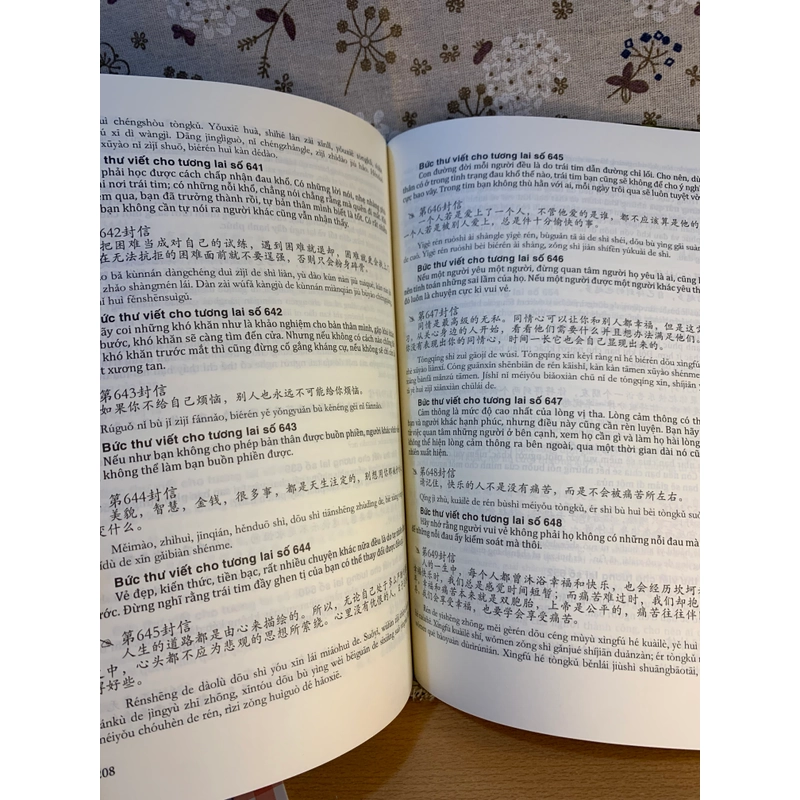 ui chéngshòu tòngkǔ. Yǒuxiē huà, shìhé làn zài xīnlǐ, yǒuxiē tòngkǔ,
xūyào nǐ zìjǐ shuō, biérén hui kàn dédào.
thư viết cho tương lai số 641
phải học được cách chấp nhận đau khổ. Có những lời nói,
nơi trái tim; có những nỗi khổ, chẳng nói chẳng rằng mà quên đi
xem qua, bạn đã trưởng thành rồi, tự bản thân mình biết là tốt. Có
bạn không cần tự nói ra người khác cũng vẫn nhận thấy.
642封信
把困难当成对自己的试练，遇到困难就退却，困难就会找上
在无法抗拒的困难面前就不要逞强，否则只会粉身碎骨。
bǎ kùnnán dàngchéng duì zìjǐ de shì liàn, yù dào kùn nán jiù
zhǎo shàngmén lái. Dàn zài wúfǎ kàngjù de kùnnán miànqián jiù bùyào chěngqiáng,
huì fěnshēnsuìgǔ.
Bức thư viết cho tương lai số 642
Hãy coi những khó khăn như là khảo nghiệm cho bản thân mình, gặp khó
bước, khó khăn sẽ càng tìm đến cửa. Nhưng nếu không có cách nào
khó khăn trước mắt thì cũng đừng cố gắng kháng cự, nếu không sẽ chỉ
t xương tan.
第643封信
如果你不给自己烦恼，别人也永远不可能给你烦恼。
Rúguǒ nǐ bù jǐ zìjǐ fánnǎo, biérén yě yǒngyuǎn bù kěnéng gěi nǐ fánnǎo.
Bức thư viết cho tương lai số 643
Nếu như bạn không cho phép bản thân được buồn phiền, người khác
không thể làm bạn buồn phiền được.
第644封信
美貌，智慧，金钱，很多事，都是天生注定的，别想用
变什么。
Měimào, zhìhuì, jīnqián, hěnduō shì, dōu shì tiānshēng zhùdìng de,
dìù de xīn gǎibiàn shénme.
Bức thư viết cho tương lai số 644
Vẻ đẹp, kiến thức, tiền bạc, rất nhiều chuyện khác nữa đều là do
trước. Đừng nghĩ rằng trái tim đầy ghen tị của bạn có thể thay đổi được
第645封信
人生的道路都是由心来描绘的。所以，无论自己处于多么
之中，心头都不应为悲观的思想所萦绕。心里没有仇恨的人，
得好些。
Rénshēng de dàolù dōu shì yóu xīn lái miáohuì de. Suǒyǐ,
jiānkǔ de jìngyù zhī zhōng, xīntóu dōu bù yìng wèi bēiguān de sīxiǎng
méiyǒu chóuhèn de rén, rìzi zǒng huìguò dé hǎoxiē.
208
Bức thư viết cho tương lai số 645
Con đường đời mỗi người đều là do trái tim dẫn đường chỉ lối. Cho nên, dù
thân có ở trong tình trạng đau khổ thế nào, trái tim bạn cũng sẽ không để cho ý nghĩ
cực bao vây. Trong tim bạn không thù hận với ai, mỗi ngày trôi qua sẽ luôn tuyệt vời
第646封信
一个人若是爱上了一个人，不管他爱的是谁，都不应该算是他的
一个人若是被别人爱上，总是件十分愉快的事。
Yīgè rén ruòshì ài shàngle yīgè rén, bùguǎn tā ài de shì shéi, dōu bù yìng gāi suàn
de cuò. Yīgè rén ruòshì bèi biérén ài shàng, zǒng shì jiàn shífēn yúkuài de shì.
Bức thư viết cho tương lai số 646
Nếu một người yêu một người, đừng quan tâm người họ yêu là ai, cũng
nên tính toán những sai lầm của họ. Nếu một người được người khác yêu
đó luôn là chuyện cực kì vui vẻ.
第647封信
同情是最高级的无私。同情心可以让你和别人都幸福，但是这
从关心身边的人开始，看看他们需要什么并且想办法满足他们。
没有表现你的同情心，时间一长它也会自己显现出来的。
Tóngqíng shì zuì gāojí de wúsī. Tóngqíng xīn kěyǐ ràng nǐ hé biérén dōu xìngfú,
Cóng guānxīn shēnbiān de rén kāishǐ, kàn kàn tāmen xūyào shénme
xiǎng bànfǎ mǎnzú tāmen. Jíshǐ nǐ méiyǒu biǎoxiàn chū nǐ de tóngqíng xīn, shíjiān
huì zìjǐ xiǎnxiàn chūlái de.
Bức thư viết cho tương lai số 647
Cảm thông là mức độ cao nhất của lòng vị tha. Lòng cảm thông có
bạn và người khác hạnh phúc, nhưng điều này cũng cần rèn luyện. Bạn hãy
từ việc quan tâm những người ở bên cạnh, xem họ cần gì và làm họ hài lòng.
không thể hiện lòng cảm thông ra bên ngoài, qua một thời gian dài nó cũng
xuất hiện.
第648封信
请记住，快乐的人不是没有痛苦，而是不会被痛苦所左右。
Qǐng jì zhù, kuàilè de rén bùshì méiyǒu tòngkǔ, ér shì bù huì bèi tòngkǔ suǒ
Bức thư viết cho tương lai số 648
Hãy nhớ rằng người vui vẻ không phải họ không có những nỗi đau mà
để những nỗi đau ấy kiểm soát mà thôi.
第649封信
人的一生中，每个人都曾沐浴幸福和快乐，也会经历坎坷
快乐时，我们总是感觉时间短暂；而痛苦难过时，我们却抱
幸福和痛苦本来就是双胞胎，上帝是公平的，痛苦往往伴
我们会享受幸福，也要学会享受痛苦。
Rén de yīshēng zhōng, měi gèrén dōu céng mùyù xìngfú hé kuàilè, yě huì
Xìngfú kuàilè shí, wǒmen zǒng shì gǎnjué shíjiān duǎnzàn; ér tòngkǔ
què bàoyuàn dùrìrúnián. Xìngfú hé tòngkǔ běnlái jiùshì shuāngbāotāi,